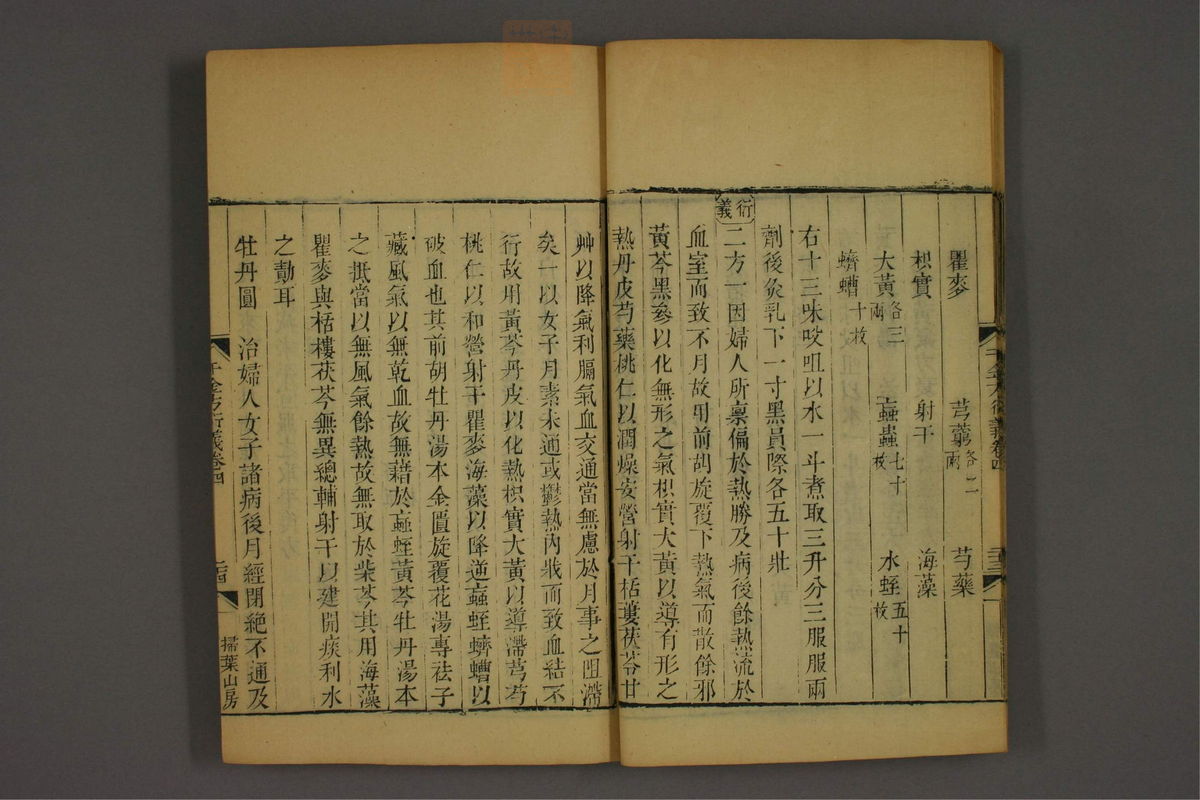 瞿麥　芎藭各二兩　芍藥
枳實　射干　海藻
大黃各三兩　蝱蟲七十枚　水蛭五十枚
蠐螬十枚
右十三味㕮咀以水一斗煮取三升分三服服兩
劑後灸乳下一寸黑員際各五十壯
衍義
二方一因婦人所稟偏於熱勝及病後餘熱流於
血室而致不月故用前胡旋覆下熱氣而散餘邪
黃芩黑參以化無形之氣枳實大黃以導有形之
熱丹皮芍藥桃仁以潤燥安營射干栝蔞茯苓甘
艸以降氣利膈氣血交通當無慮於月事之阻滯
矣一以女子月素未通或鬱熱內戕而致血結不
行故用黃芩丹皮以化熱枳實大黃以導滯芎芍
桃仁以和營射干瞿麥海藻以降逆蝱蛭蠐螬以
破血也其前胡牡丹湯本金匱旋覆花湯專祛子
藏風氣以無乾血故無藉於蝱蛭黃芩牡丹湯本
之抵當以無風氣餘熱故無取於柴芩其用海藻
瞿麥與栝樓茯苓無異總輔射干以建開痰利水
之勣耳
牡丹圓　治婦人女子諸病後月經閉絕不通及
千金方衍義卷四
掃葉山房